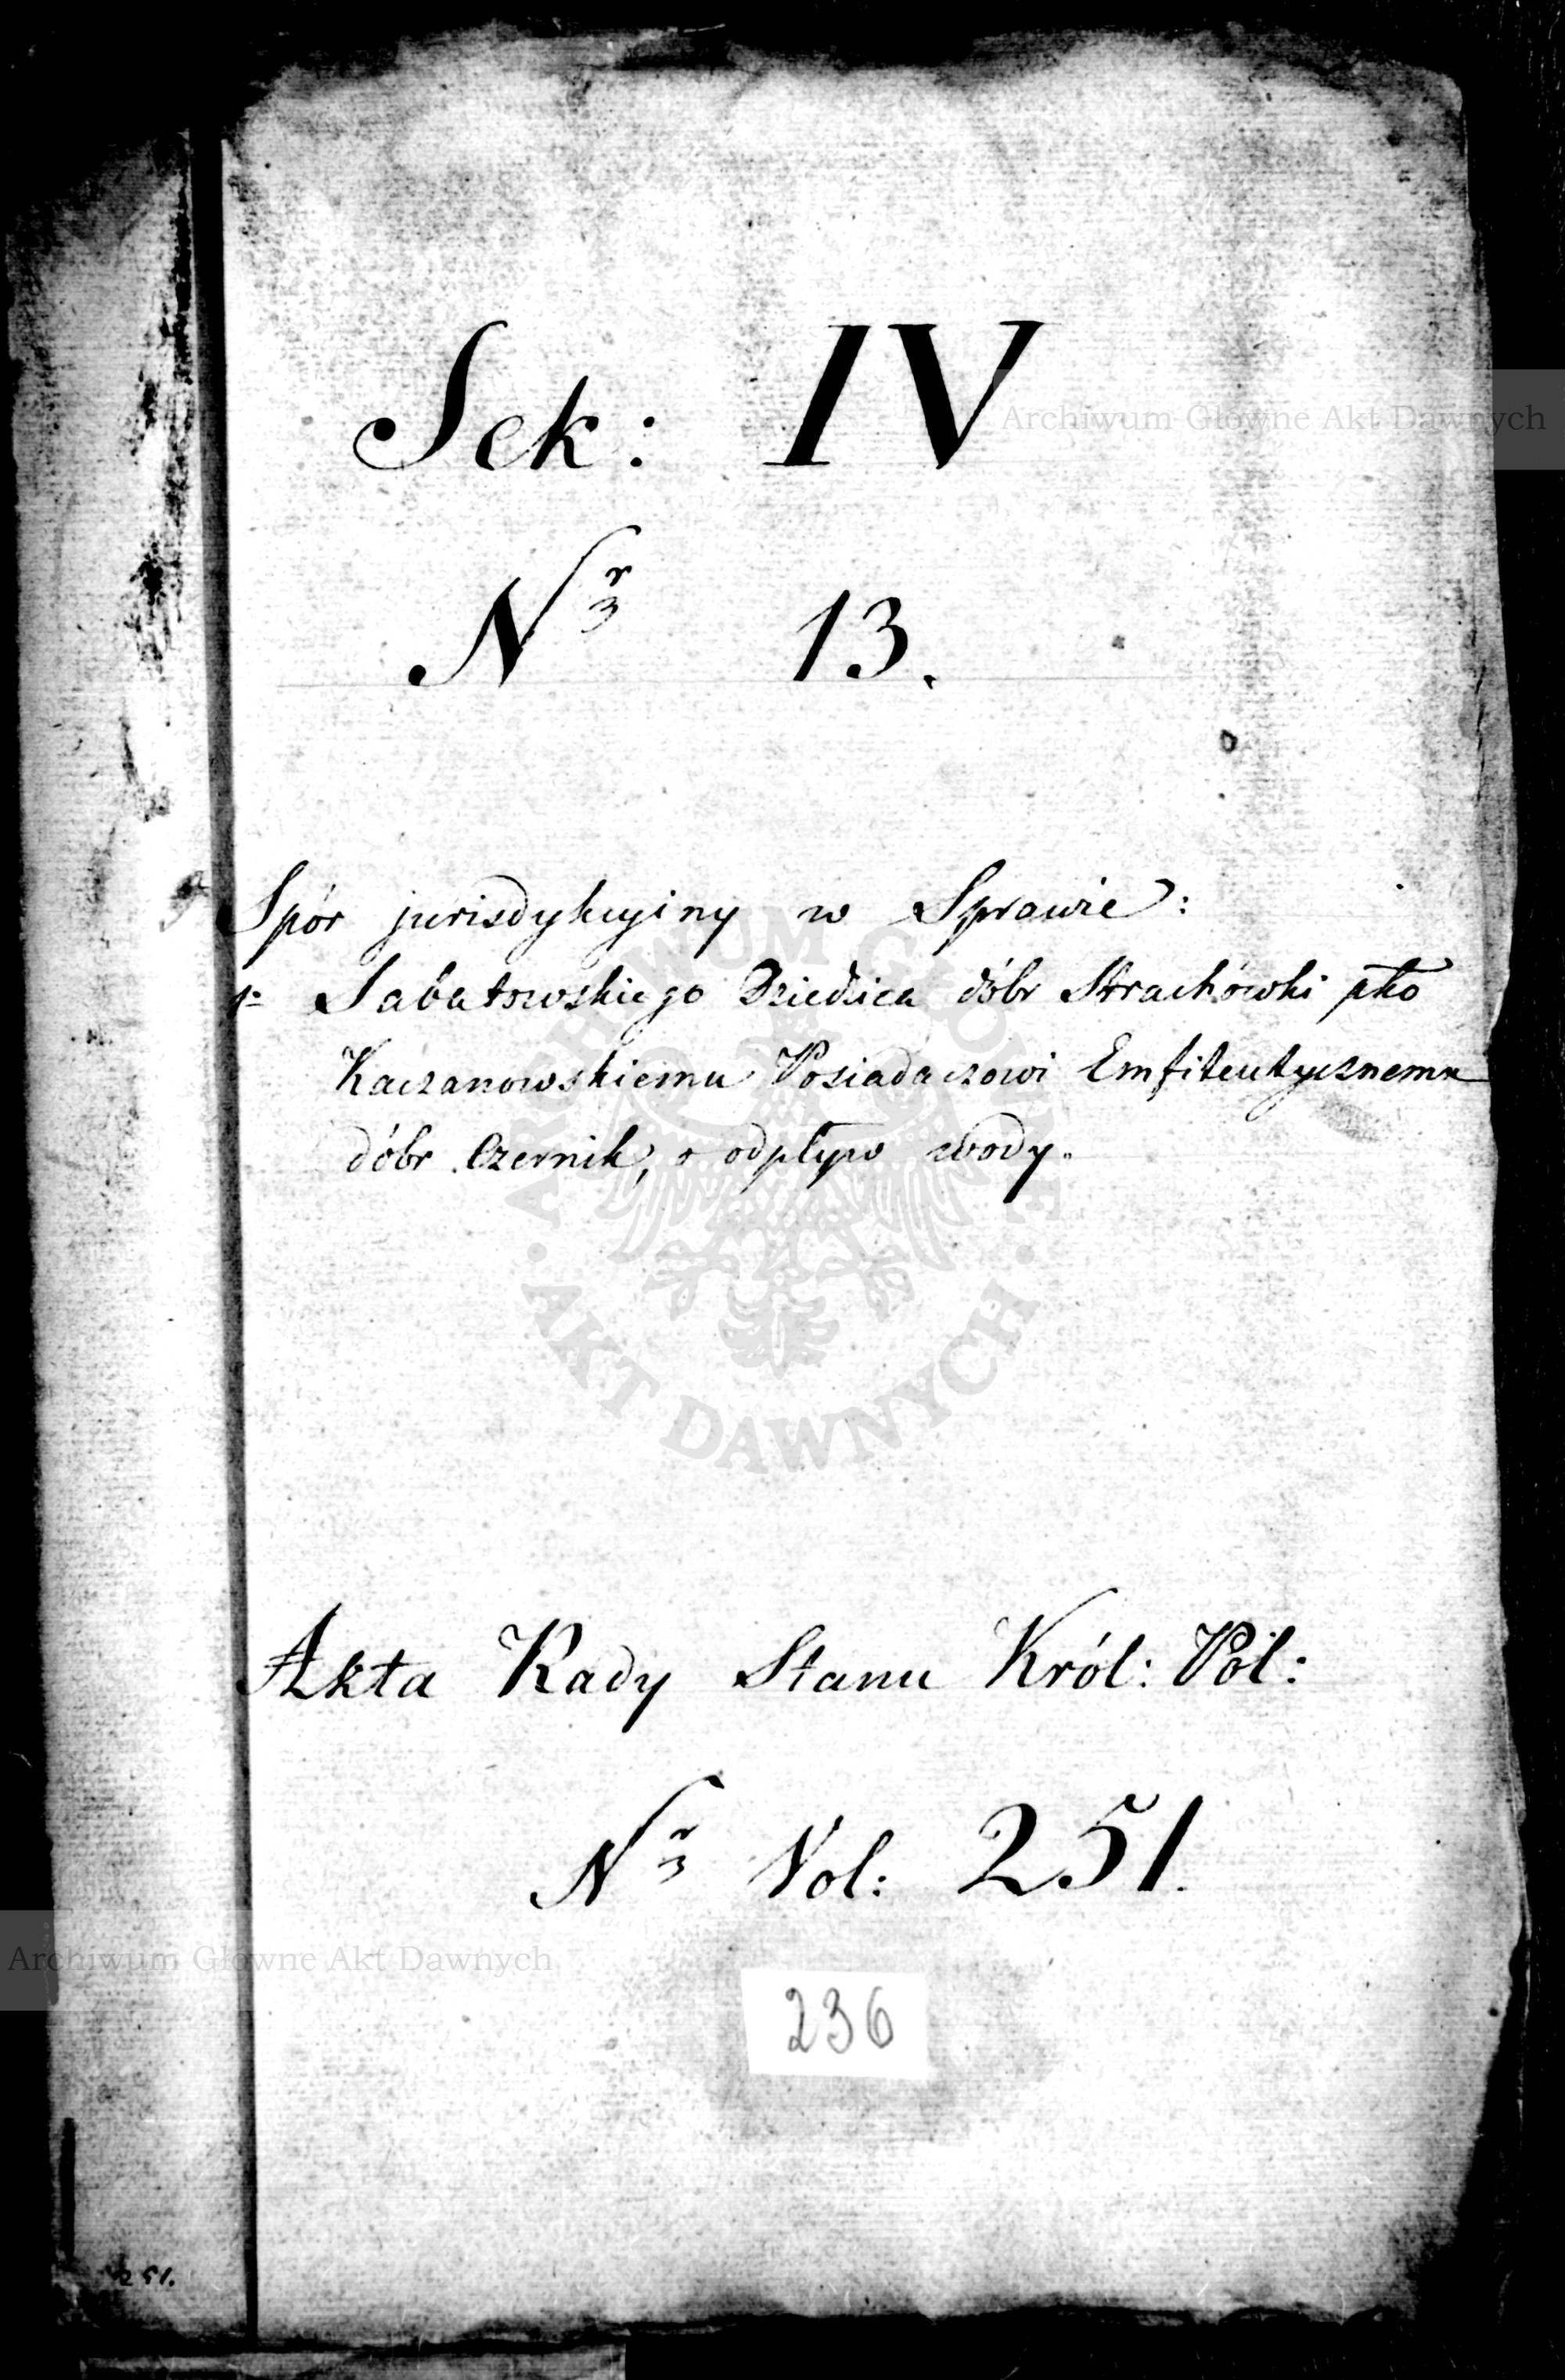 Sek: IV
Nr 13.
Spór jurisdykcyiny w Sprawie:
1= Sabatowskiego Dziedzica dóbr Strachówki pko
Kaczanowskiemu Posiadaczowi Emfiteutycznemu
dóbr Czernik, o odpływ wody.
Akta Rady Stanu Król: Pol:
Nr Vol: 251.
236
251.
Archiwum Główne Akt Dawnych
Archiwum Główne Akt Dawnych
ARCHIWUM GŁÓWNE
· AKT DAWNYCH ·